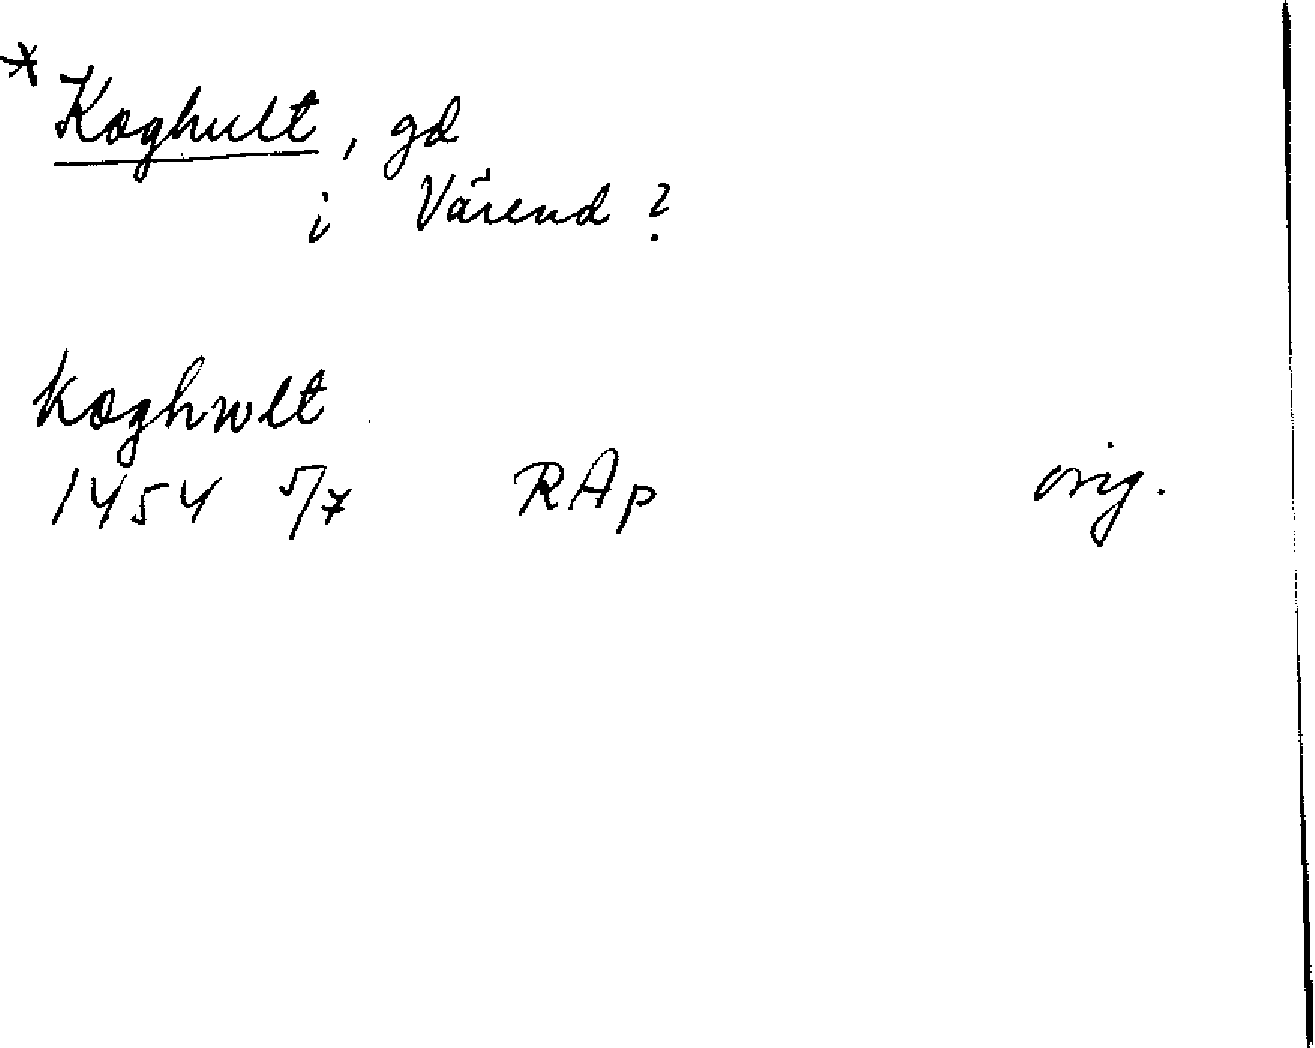 * Koghult, gd
i Värend ?
koghwlt
1454 5/7 RAp orig.